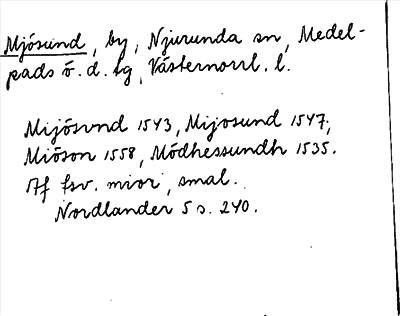 Mjösund, by, Njurunda sn, Medel-
pads ö. d. tg, Västernorrl. l.
Mijösvnd 1543, Mijosund 1547;
Miöson 1558, Mödhessundh 1535.
Af fsv. mior, smal.
Nordlander 5 s. 240.